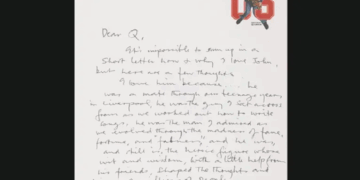 Dear Q,
It is impossible to sum up in a
short letter how & why I love John,
but here are a few thoughts.
I love him because ... he
was a mate through our teenage years
in Liverpool, he was the guy I sat across
from as we worked out how to write
songs, he was the man I admired as
we evolved through the madness of fame,
fortune, and "fabness", and he was,
and still is, the heroic figure whose
wit and wisdom, with a little help from
his friends, shaped the thoughts and